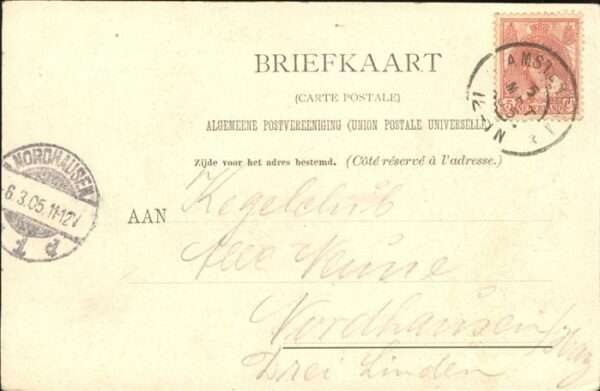 BRIEFKAART
(CARTE POSTALE)
ALGEMEENE POSTVEREENIGING (UNION POSTALE UNIVERSELLE)
Zijde voor het adres bestemd. (Côté réservé à l'adresse.)
NORDHAUSEN
6.3.05.11-12V
AAN Kegelclub
Alle Neune
Nordhausen / Harz
Drei Linden